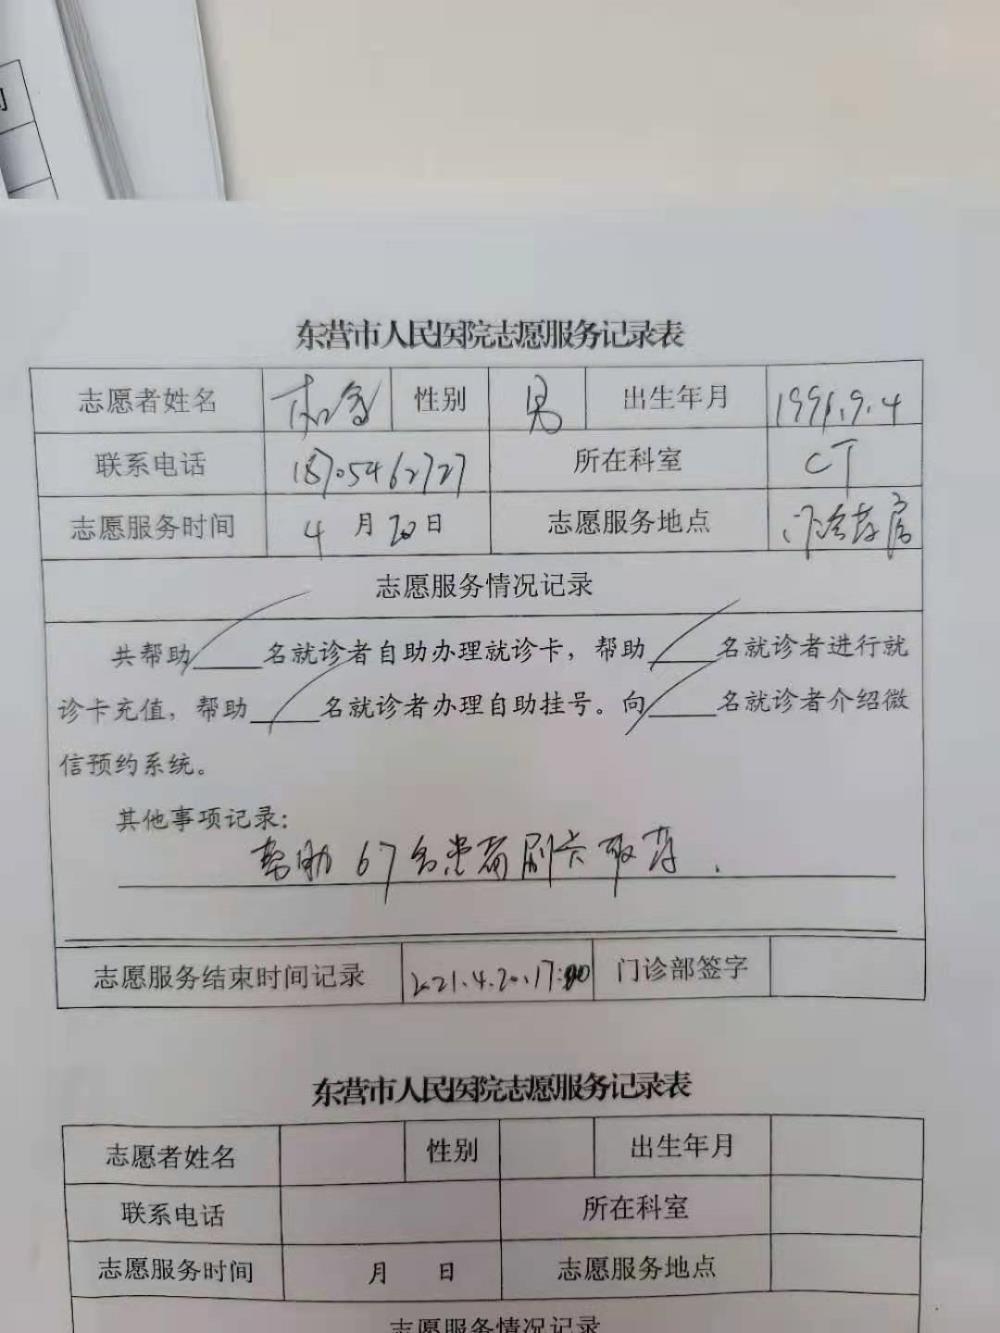 东营市人民医院志愿服务记录表
志愿者姓名 性别 男 出生年月 1991.9.4
联系电话 18705462727 所在科室 CT
志愿服务时间 4月20日 志愿服务地点 门诊药房
志愿服务情况记录
共帮助____名就诊者自助办理就诊卡，帮助____名就诊者进行就
诊卡充值，帮助____名就诊者办理自助挂号。向____名就诊者介绍微
信预约系统。
其他事项记录：
帮助67名患者刷卡取药.
志愿服务结束时间记录 2021.4.20.17:00 门诊部签字
东营市人民医院志愿服务记录表
志愿者姓名 性别 出生年月
联系电话 所在科室
志愿服务时间 月 日 志愿服务地点
志愿服务情况记录